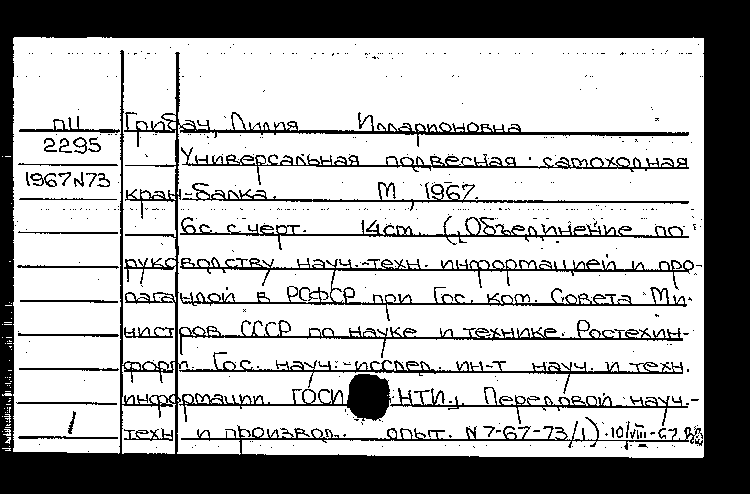 П11
2295
1967N73
Грибач, Лилия Илларионовна
Универсальная подвесная самоходная
кран-балка. М., 1967.
6с. с черт. 14см. („Объединение по
руководству науч.-техн. информацией и про-
пагандой в РСФСР при Гос. ком. Совета Ми-
нистров СССР по науке и технике. Ростехин-
форм. Гос. науч.-исслед. ин-т науч. и техн.
информации. ГОСИНТИ„. Передовой науч.-
техн и производ. опыт. N 7-67-73/1). 10/VIII-67.